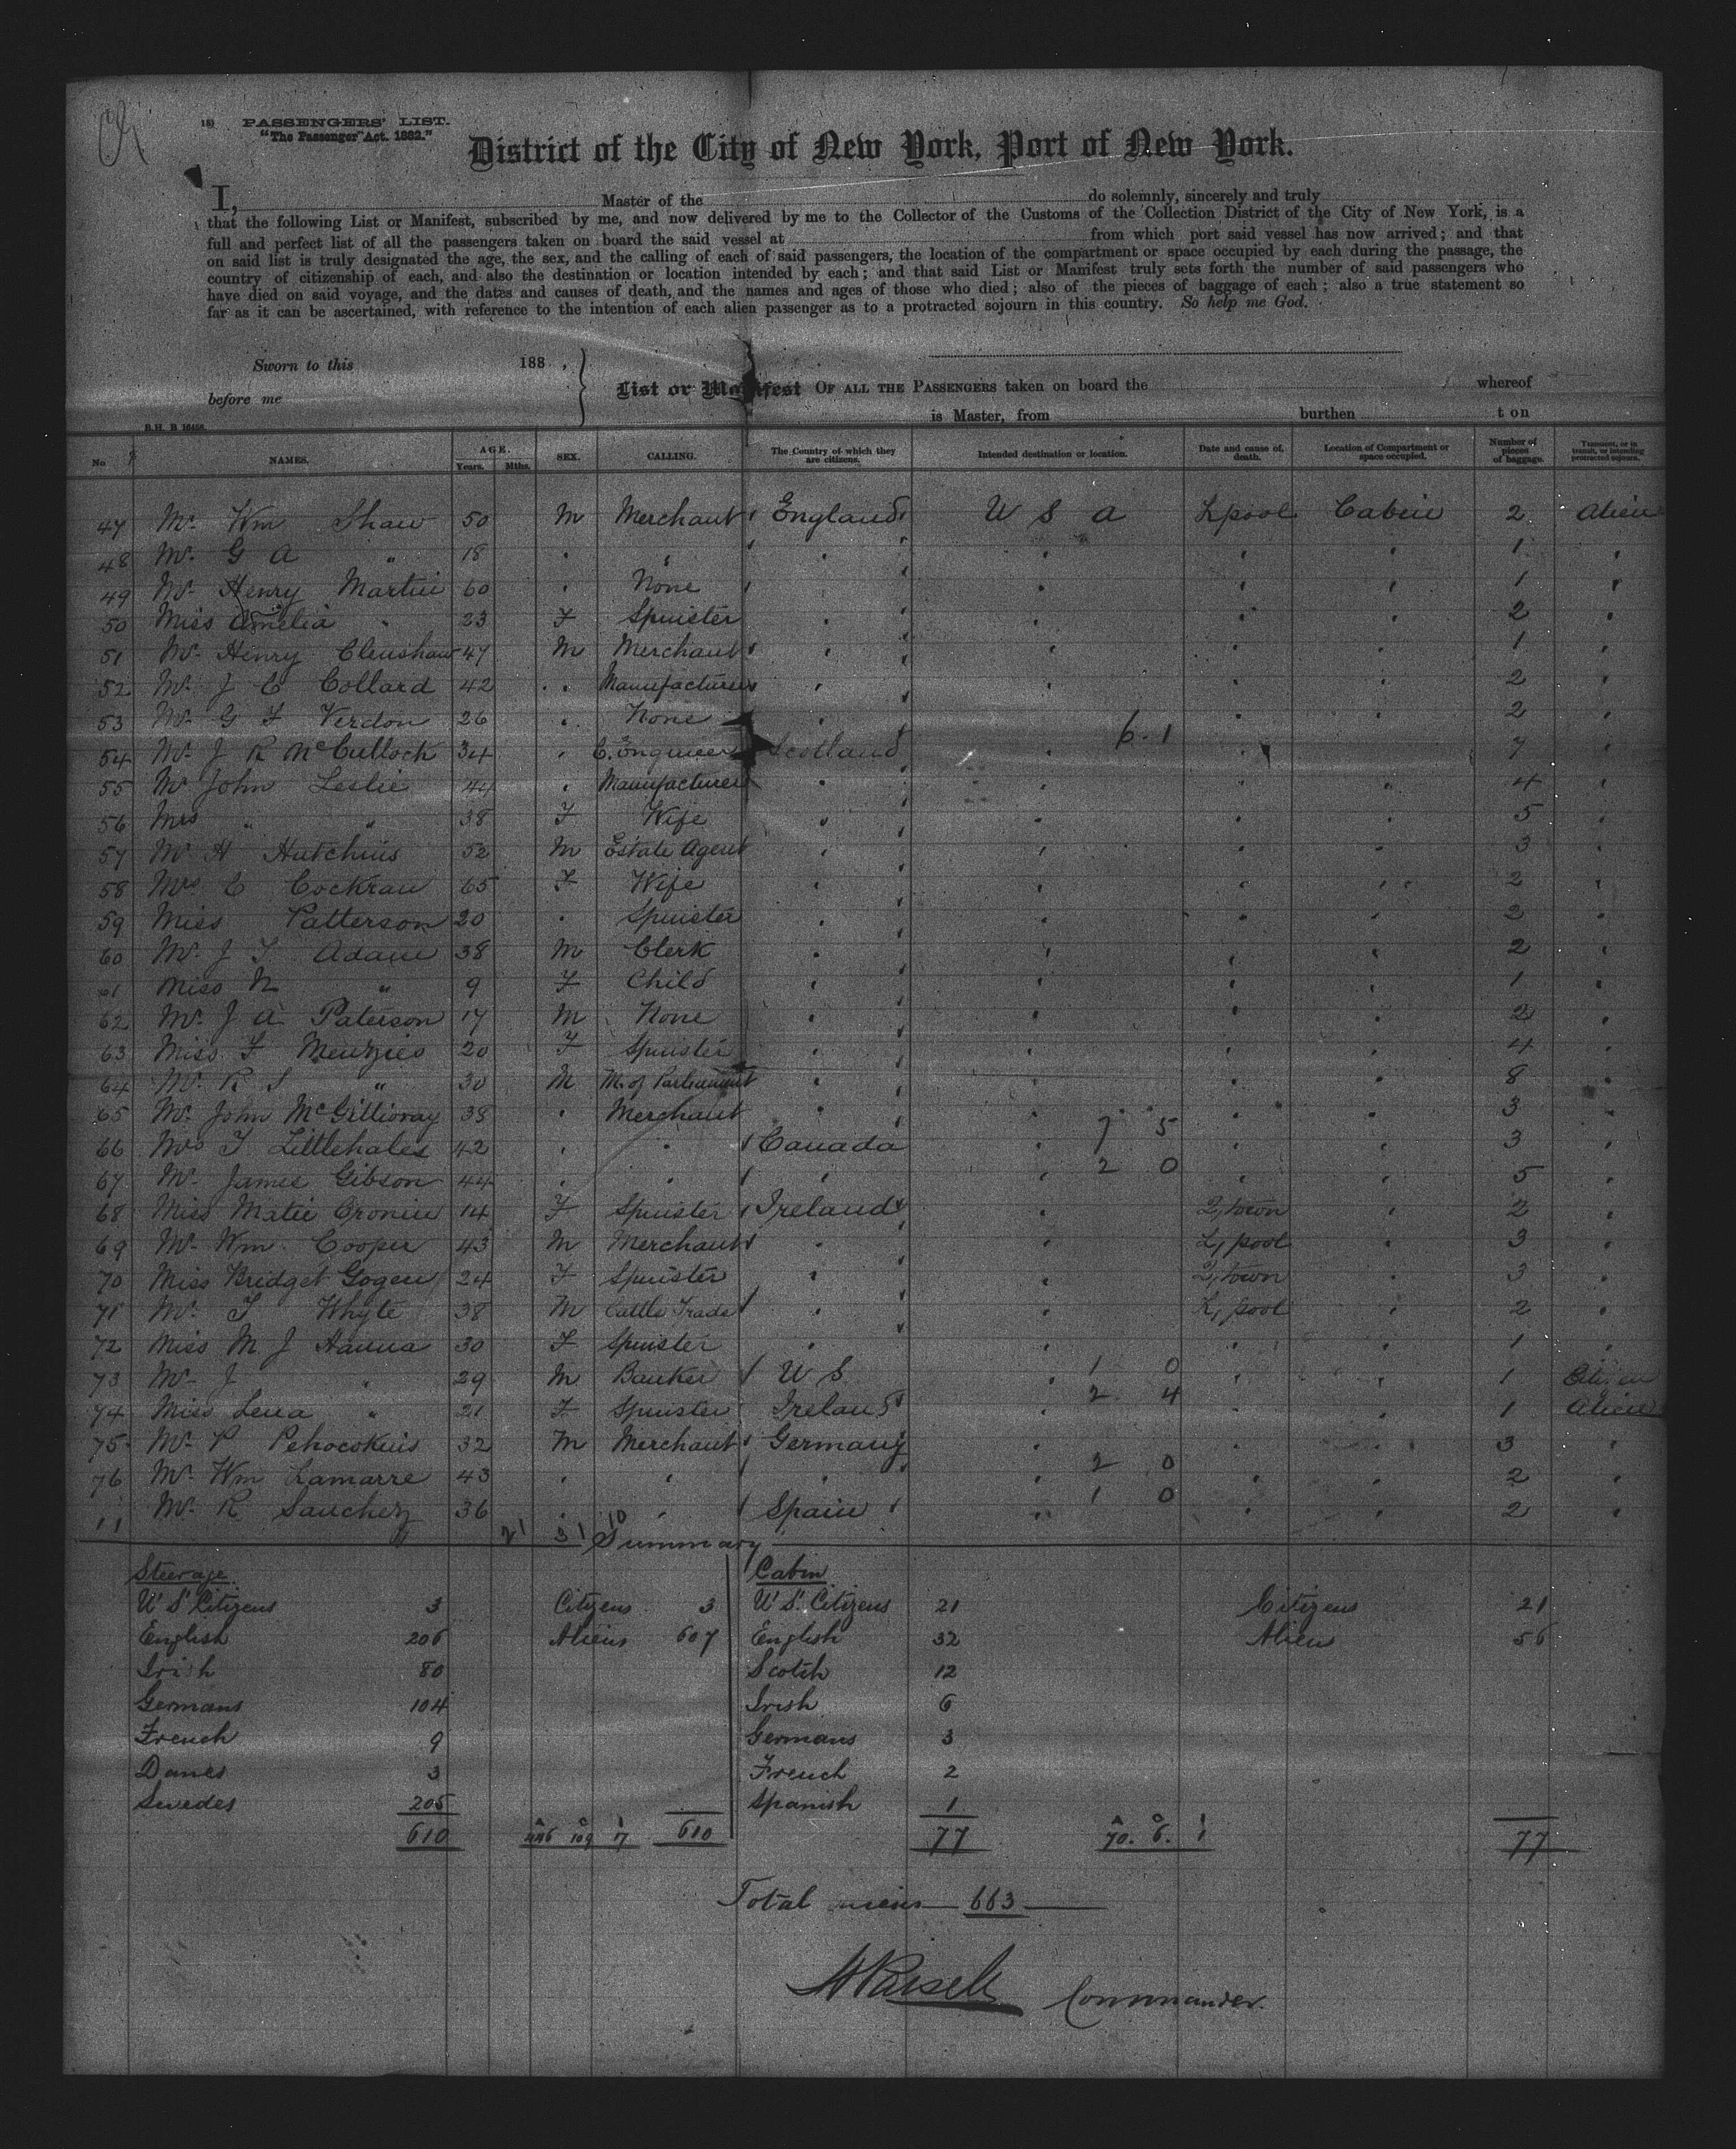 15) PASSENGERS' LIST.
"The Passenger" Act. 1882."
District of the City of New York, Port of New York.
I, Master of the do solemnly, sincerely and truly
that the following List or Manifest, subscribed by me, and now delivered by me to the Collector of the Customs of the Collection District of the City of New York, is a
full and perfect list of all the passengers taken on board the said vessel at from which port said vessel has now arrived; and that
on said list is truly designated the age, the sex, and the calling of each of said passengers, the location of the compartment or space occupied by each during the passage, the
country of citizenship of each, and also the destination or location intended by each; and that said List or Manifest truly sets forth the number of said passengers who
have died on said voyage, and the dates and causes of death, and the names and ages of those who died; also of the pieces of baggage of each; also a true statement so
far as it can be ascertained, with reference to the intention of each alien passenger as to a protracted sojourn in this country. So help me God.
Sworn to this 188 ,
before me
List or Manifest OF ALL THE PASSENGERS taken on board the whereof
is Master, from burthen ton
B.H. B 16456.
No NAMES. AGE. Years. Mths. SEX. CALLING. The Country of which they are citizens. Intended destination or location. Date and cause of death. Location of Compartment or space occupied. Number of pieces of baggage. Transient, or in transit, or intending protracted sojourn.
47 Mr. Wm Shaw 50 M Merchant England U S A Lpool Cabin 2 Alien
48 Mr. G A " 18 1
49 Mr. Henry Martin 60 None 1
50 Miss Amelia " 23 F Spinster 2
51 Mr. Henry Clenshaw 47 M Merchant 1
52 Mr. J C Collard 42 Manufacturer 2
53 Mr. G F Verdon 26 None 2
54 Mr. J R McCullock 34 C. Engineer Scotland 6.1 7
55 Mr John Leslie 44 Manufacturer 4
56 Mrs " " 38 F Wife 5
57 Mr. H Hutchins 52 M Estate Agent 3
58 Mrs C Cockran 65 F Wife 2
59 Miss Patterson 20 Spinster 2
60 Mr. J T Adam 38 M Clerk 2
61 Miss N " 9 F Child 1
62 Mr. J A Paterson 17 M None 2
63 Miss F Menzies 20 F Spinster 4
64 Mr. R S " 30 M M. of Parliament 8
65 Mr. John McGillivray 38 Merchant 3
66 Mrs T Littlehales 42 Canada 7 5 3
67 Mr. James Gibson 44 2 0 5
68 Miss Matie Cronin 14 F Spinster Ireland Q,town 2
69 Mr. Wm Cooper 43 M Merchant L,pool 3
70 Miss Bridget Gogen 24 F Spinster Q,town 3
71 Mr. T Whyte 38 M Cattle Trade L,pool 2
72 Miss M J Hanna 30 F Spinster 1
73 Mr. J " 29 M Banker U S 1 0 1 Citizen
74 Miss Lena " 21 F Spinster Ireland 2 4 1 Alien
75 Mr. P Pehocokins 32 M Merchant Germany 3
76 Mr. Wm Lamarre 43 2 0 2
Mr. R Sanchez 36 Spain 1 0 2
Summary
Steerage Cabin
U S Citizens 3 Citizens 3 U S. Citizens 21 Citizens 21
English 206 Aliens 607 English 32 Aliens 56
Irish 80 Scotch 12
Germans 104 Irish 6
French 9 Germans 3
Danes 3 French 2
Swedes 205 Spanish 1
610 446 109 7 610 77 70. 6. 1 77
Total 663
H Parsell Commander.